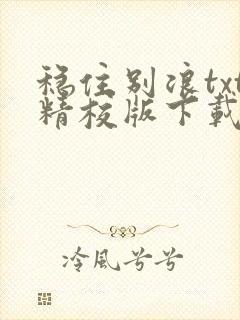 稳住别浪txt
精校版下载
冷風兮兮